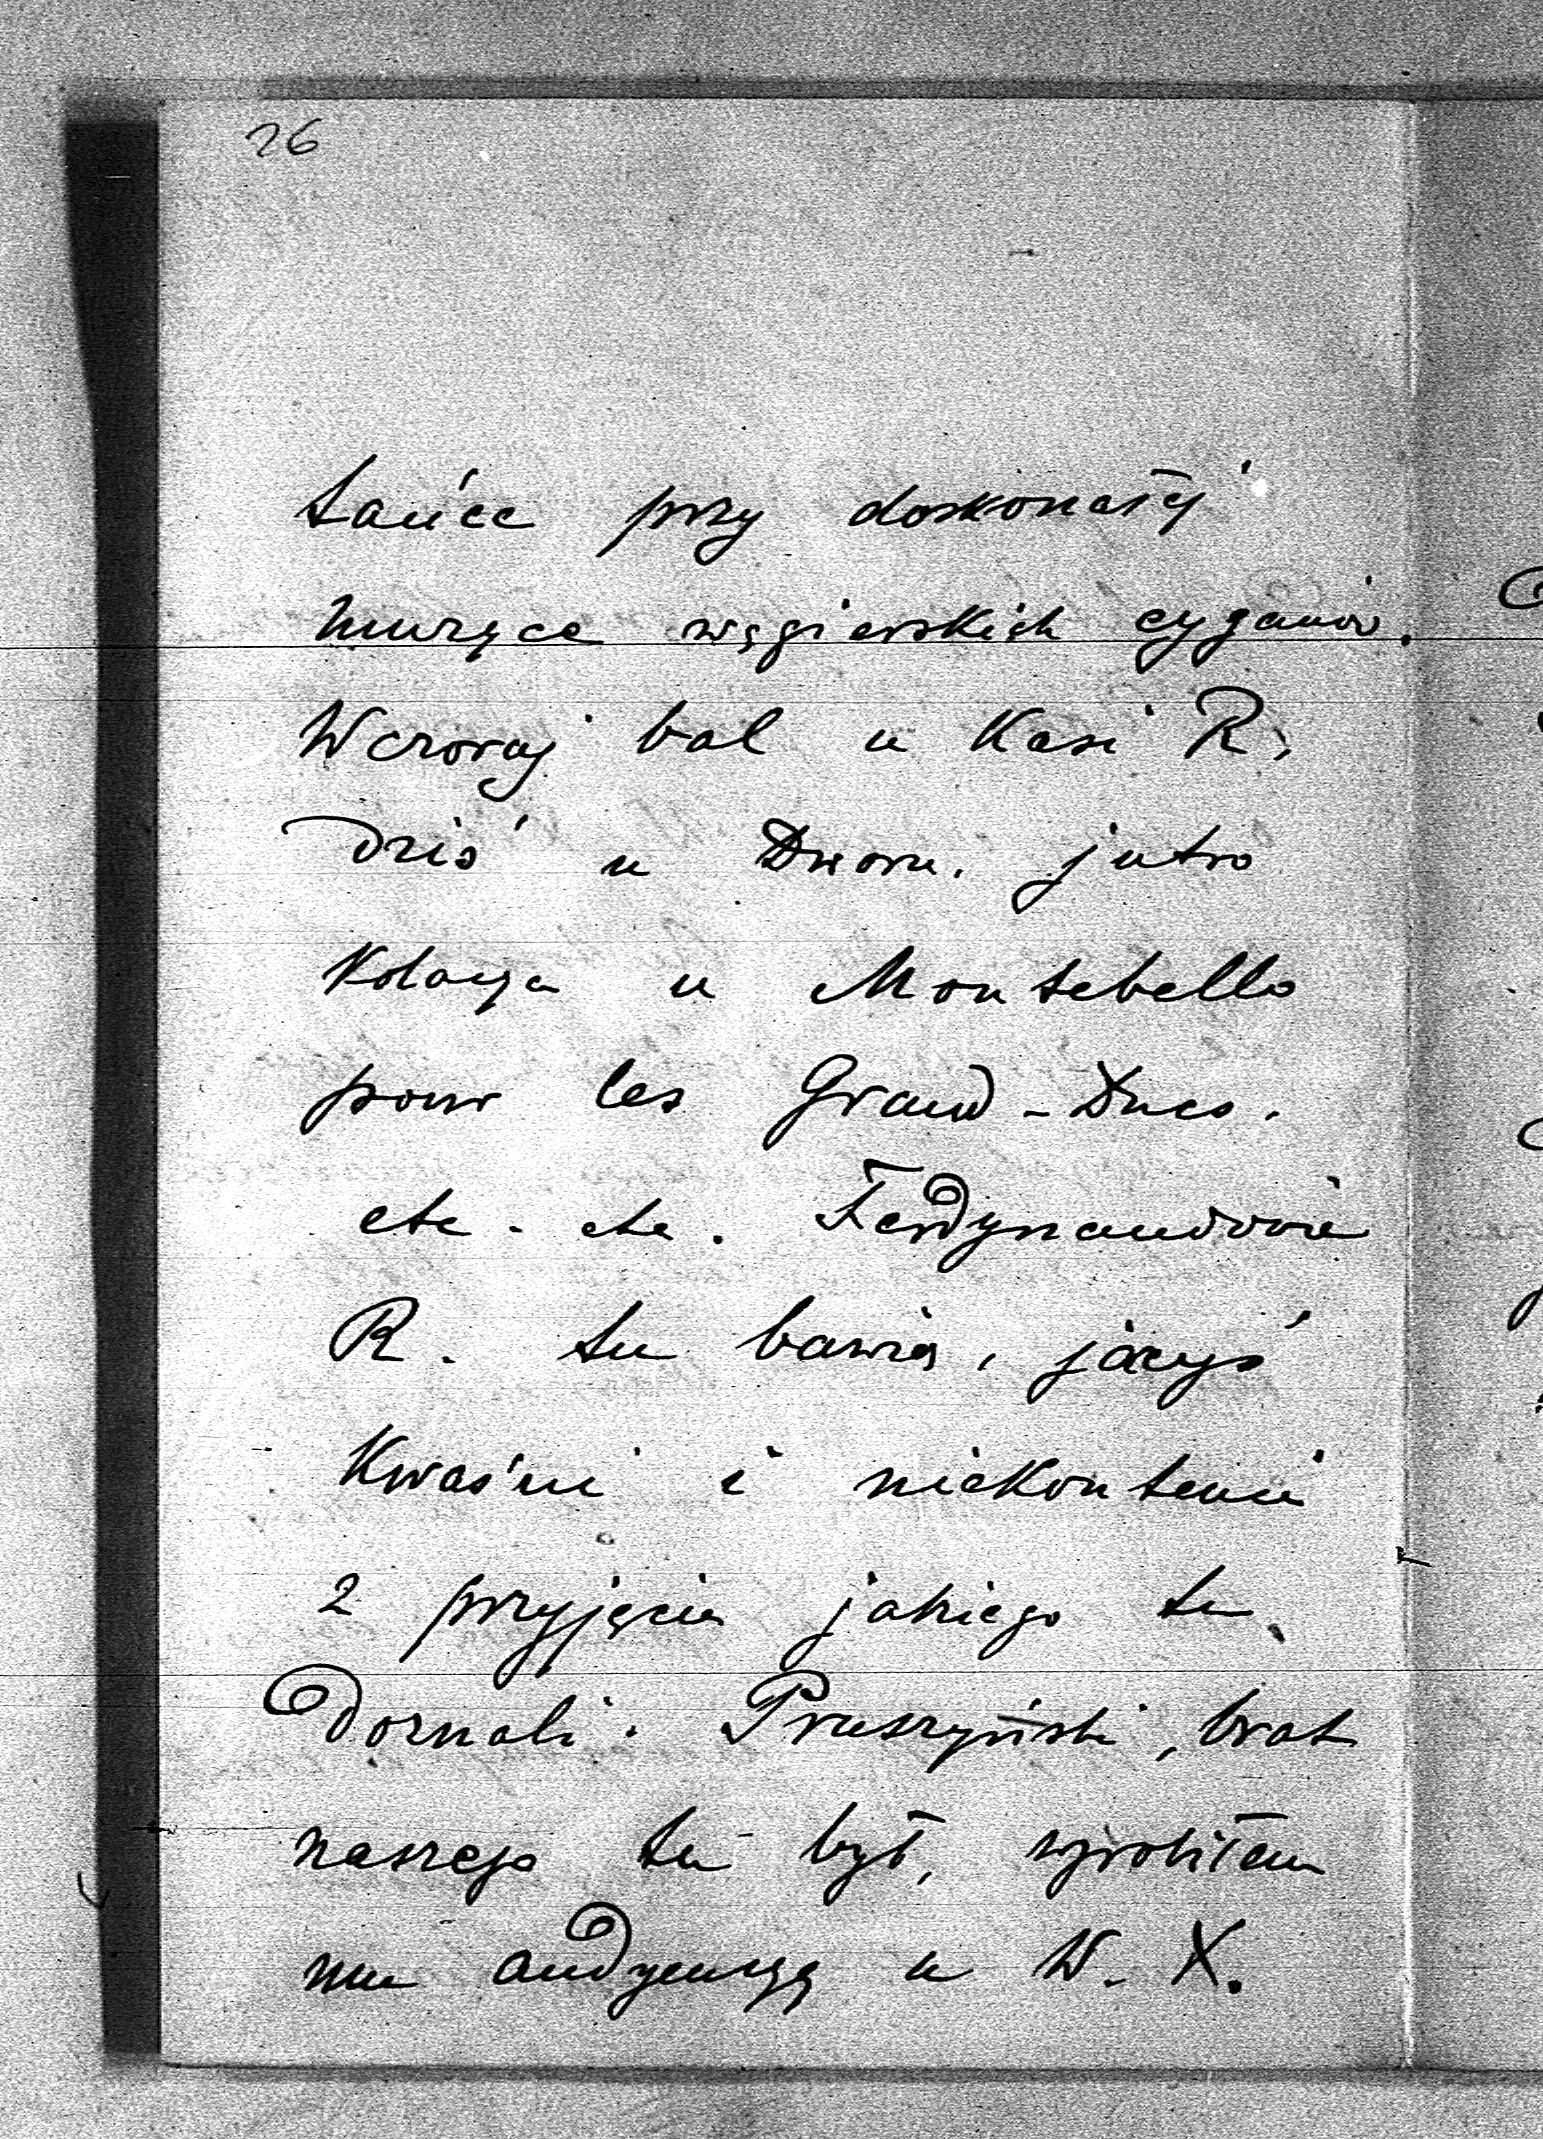 26
tańce przy doskonałéj
muzyce węgierskich cyganów.
Wczoraj bal u Kasi R,
dziś u Dworu, jutro
Kolacya u Montebello
pour les Grand-Ducs.
etc. etc. Ferdynandowie
R. tu bawią, jacyś
Kwaśni i niekontenci
z przyjęcia jakiego tu
doznali. Pruszyński, brat
naszego tu był, wyrobiłam
mu audyencyę u W. X.